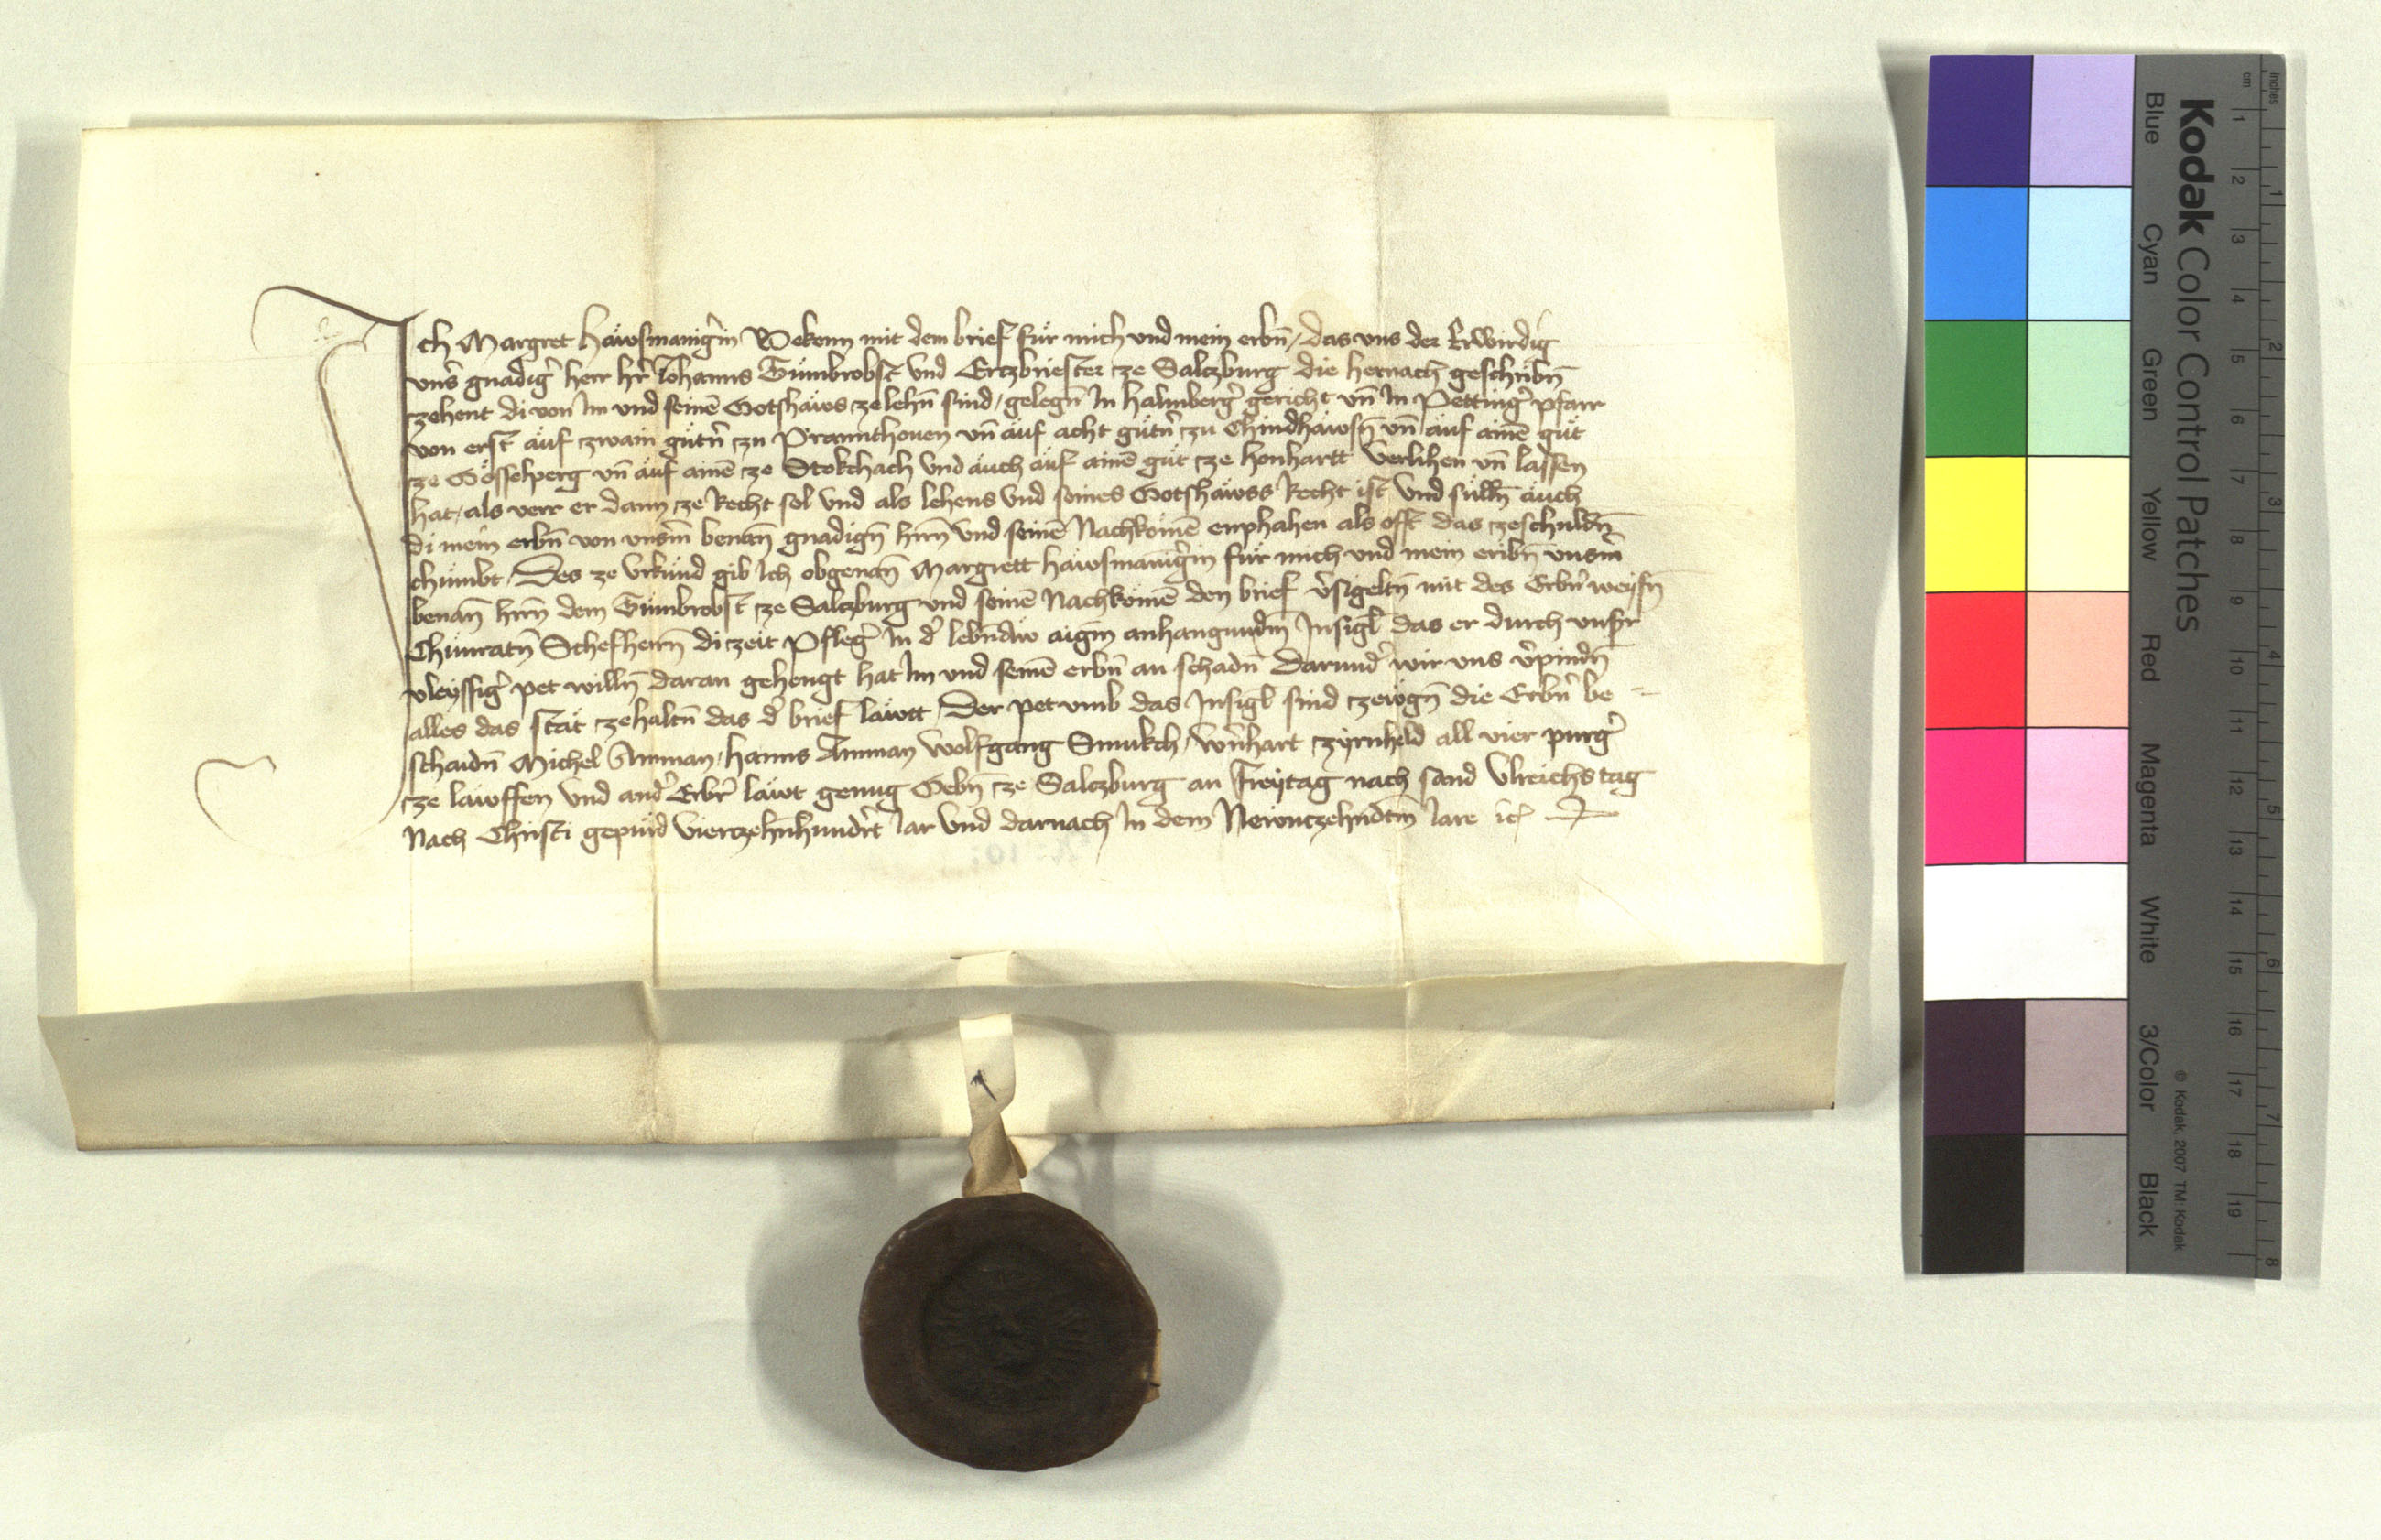 Ich Margret Häwsmanigerin Bekenn mit dem brief für mich und mein erbn̄ / das uns der Erwirdig
unser gnädiger herr her Johanns Tümbrobst und Ertzbriester ze Salczburg die hernach geschribn̄
czehent di von im und seinē Gotshäws ze lehn̄ sind / gelegn̄ In halmberger gericht un̄ In Pettinger pfarr
von erst auf czwain gütern czu Prannthouen un̄ auf acht gütern czu Chindhäwsn̄ un̄ auf ainē güt
cze Gösselperg un̄ auf ainē cze Stokchach und auch auf ainē güt cze honhartt verlihen un̄ lassen
hat / als verr er dann cze Recht sol und als lehens und seines Gotshäwss Recht ist und sülln̄ auch
di mein erbn̄ von unserm benan̄ gnadign̄ hern̄ und seinē Nachkomē enphahen als offt das czeschuldn̄
chümbt / Des ze urkünd gib ich obgenan̄ Margrett häwsmanigerin für mich und mein eribn̄ unserm
benan̄ hern̄ dem Tümbrobst cze Salczburg und seinē Nachkomē den brief versigeltn̄ mit des Erbern weysn̄
Chünratn̄ Schefherrn̄ di czeit Pfleger In der lebnäw aigm̄ anhangunderm̄ Insigl das er durch unser
vleyssiger pet willn̄ daran gehengt hat Im und seinē erbn̄ an schadn̄ Darunder wir uns verpindn̄
alles das stät czehaltn̄ das der brief läwtt / Der pet umb das Insigl sind czewgn̄ die Erbern be =
schaidn̄ Michel Amman / Hanns Amman Wolfgang Smukch / Wernhart Czyrnheld all vier purger
cze lawffen und ander Erber läwt genug Gebn̄ cze Salczburg an Freytag nach sand Ulreichs tag
Nach Christi gepürd Vierczehn̄hundert Jar und darnach In dem Newnczehndtm̄ Jare etc
Kodak Color Control Patches
Blue Cyan Green Yellow Red Magenta White 3/Color Black
© Kodak, 2007 TM: Kodak
inches 1 2 3 4 5 6 7 8
cm 1 2 3 4 5 6 7 8 9 10 11 12 13 14 15 16 17 18 19